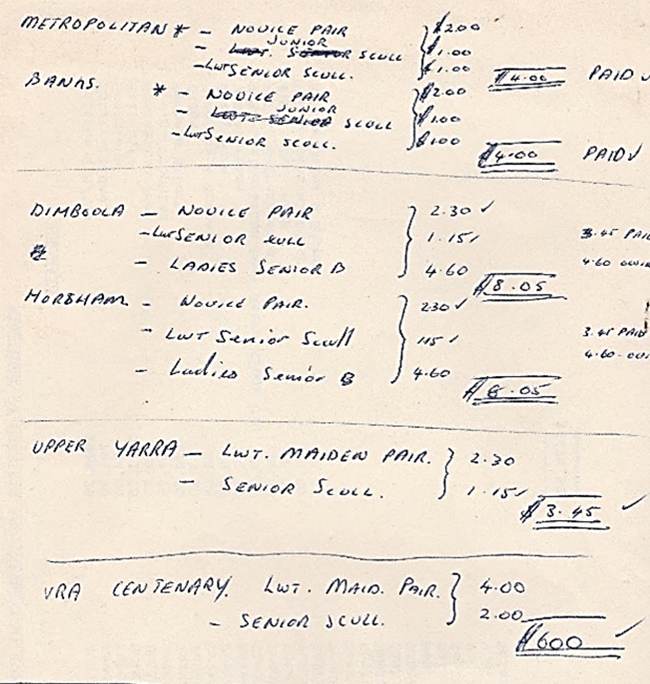 METROPOLITAN * - NOVICE PAIR $2.00
JUNIOR
- LWT. SENIOR SCULL $1.00
- LWT SENIOR SCULL. $1.00 $4.00 PAID ✓
BANKS. * - NOVICE PAIR $2.00
JUNIOR
- LWT. SENIOR SCULL $1.00
- LWT SENIOR SCULL. $1.00 $4.00 PAID ✓
DIMBOOLA - NOVICE PAIR 2.30 ✓
- LWT SENIOR SCULL 1.15 ✓ 3.45 PAID
* - LADIES SENIOR B 4.60 $8.05 4.60 OWIN
HORSHAM - NOVICE PAIR. 230 ✓
- LWT Senior Scull 115 ✓ 3.45 PAID
- Ladies Senior B 4.60 $8.05 4.60 - OWI
UPPER YARRA - LWT. MAIDEN PAIR. 2.30
- SENIOR SCULL. 1.15 ✓ $3.45 ✓
VRA CENTENARY. LWT. MAID. PAIR. 4.00
- SENIOR SCULL. 2.00 $600 ✓